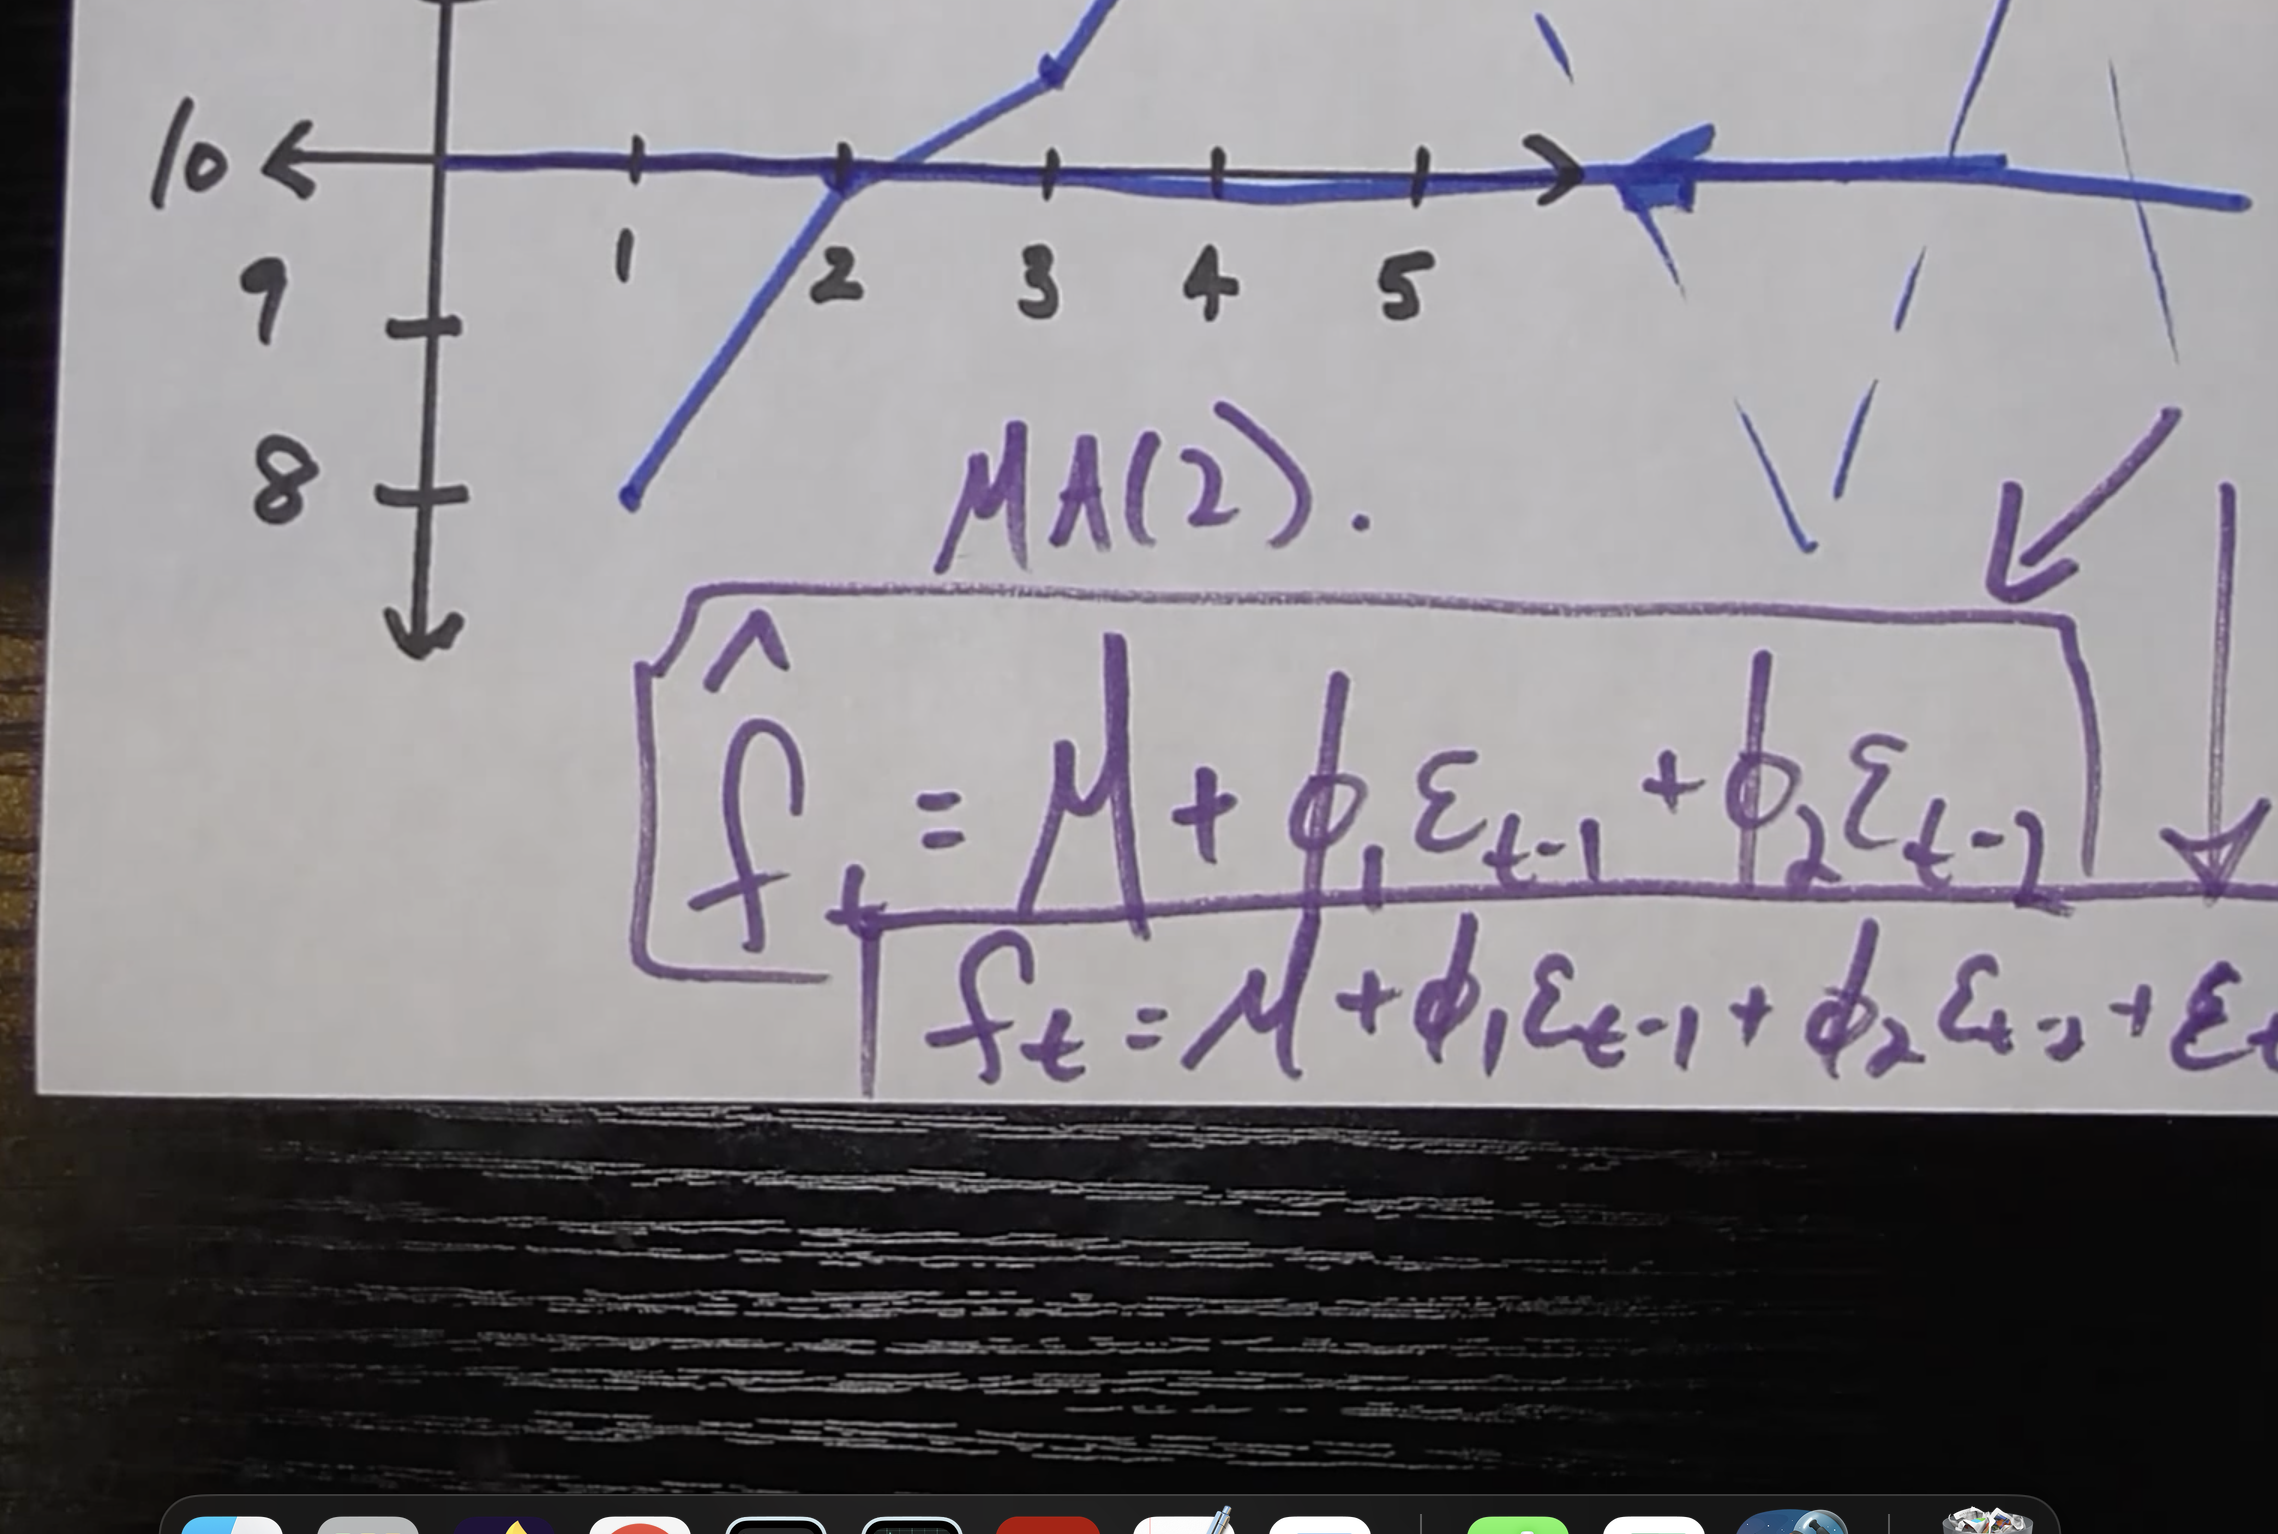 10
1 2 3 4 5
9
8
MA(2).
f̂t = μ + ϕ1 εt-1 + ϕ2 εt-2
ft = μ + ϕ1 εt-1 + ϕ2 εt-2 + εt